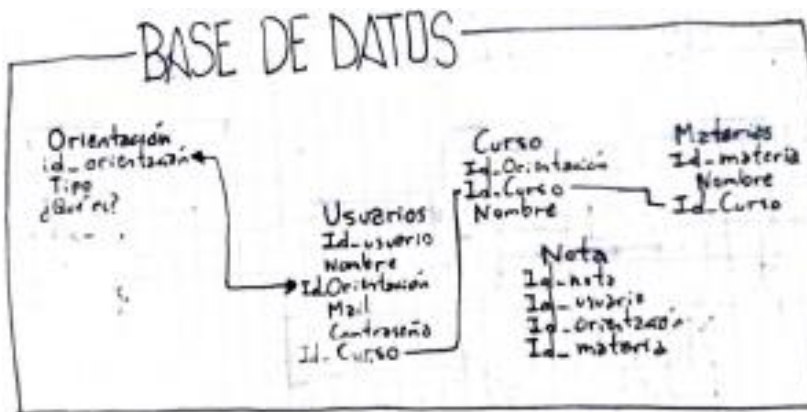 BASE DE DATOS
Orientación
id_orientación
Tipo
¿Qué es?
Usuarios
Id_usuario
Nombre
Id.Orientación
Mail
Contraseña
Id_Curso
Curso
Id_Orientación
Id_Curso
Nombre
Materias
Id_materia
Nombre
Id_Curso
Nota
Id_nota
Id_usuario
Id_orientación
Id_materia